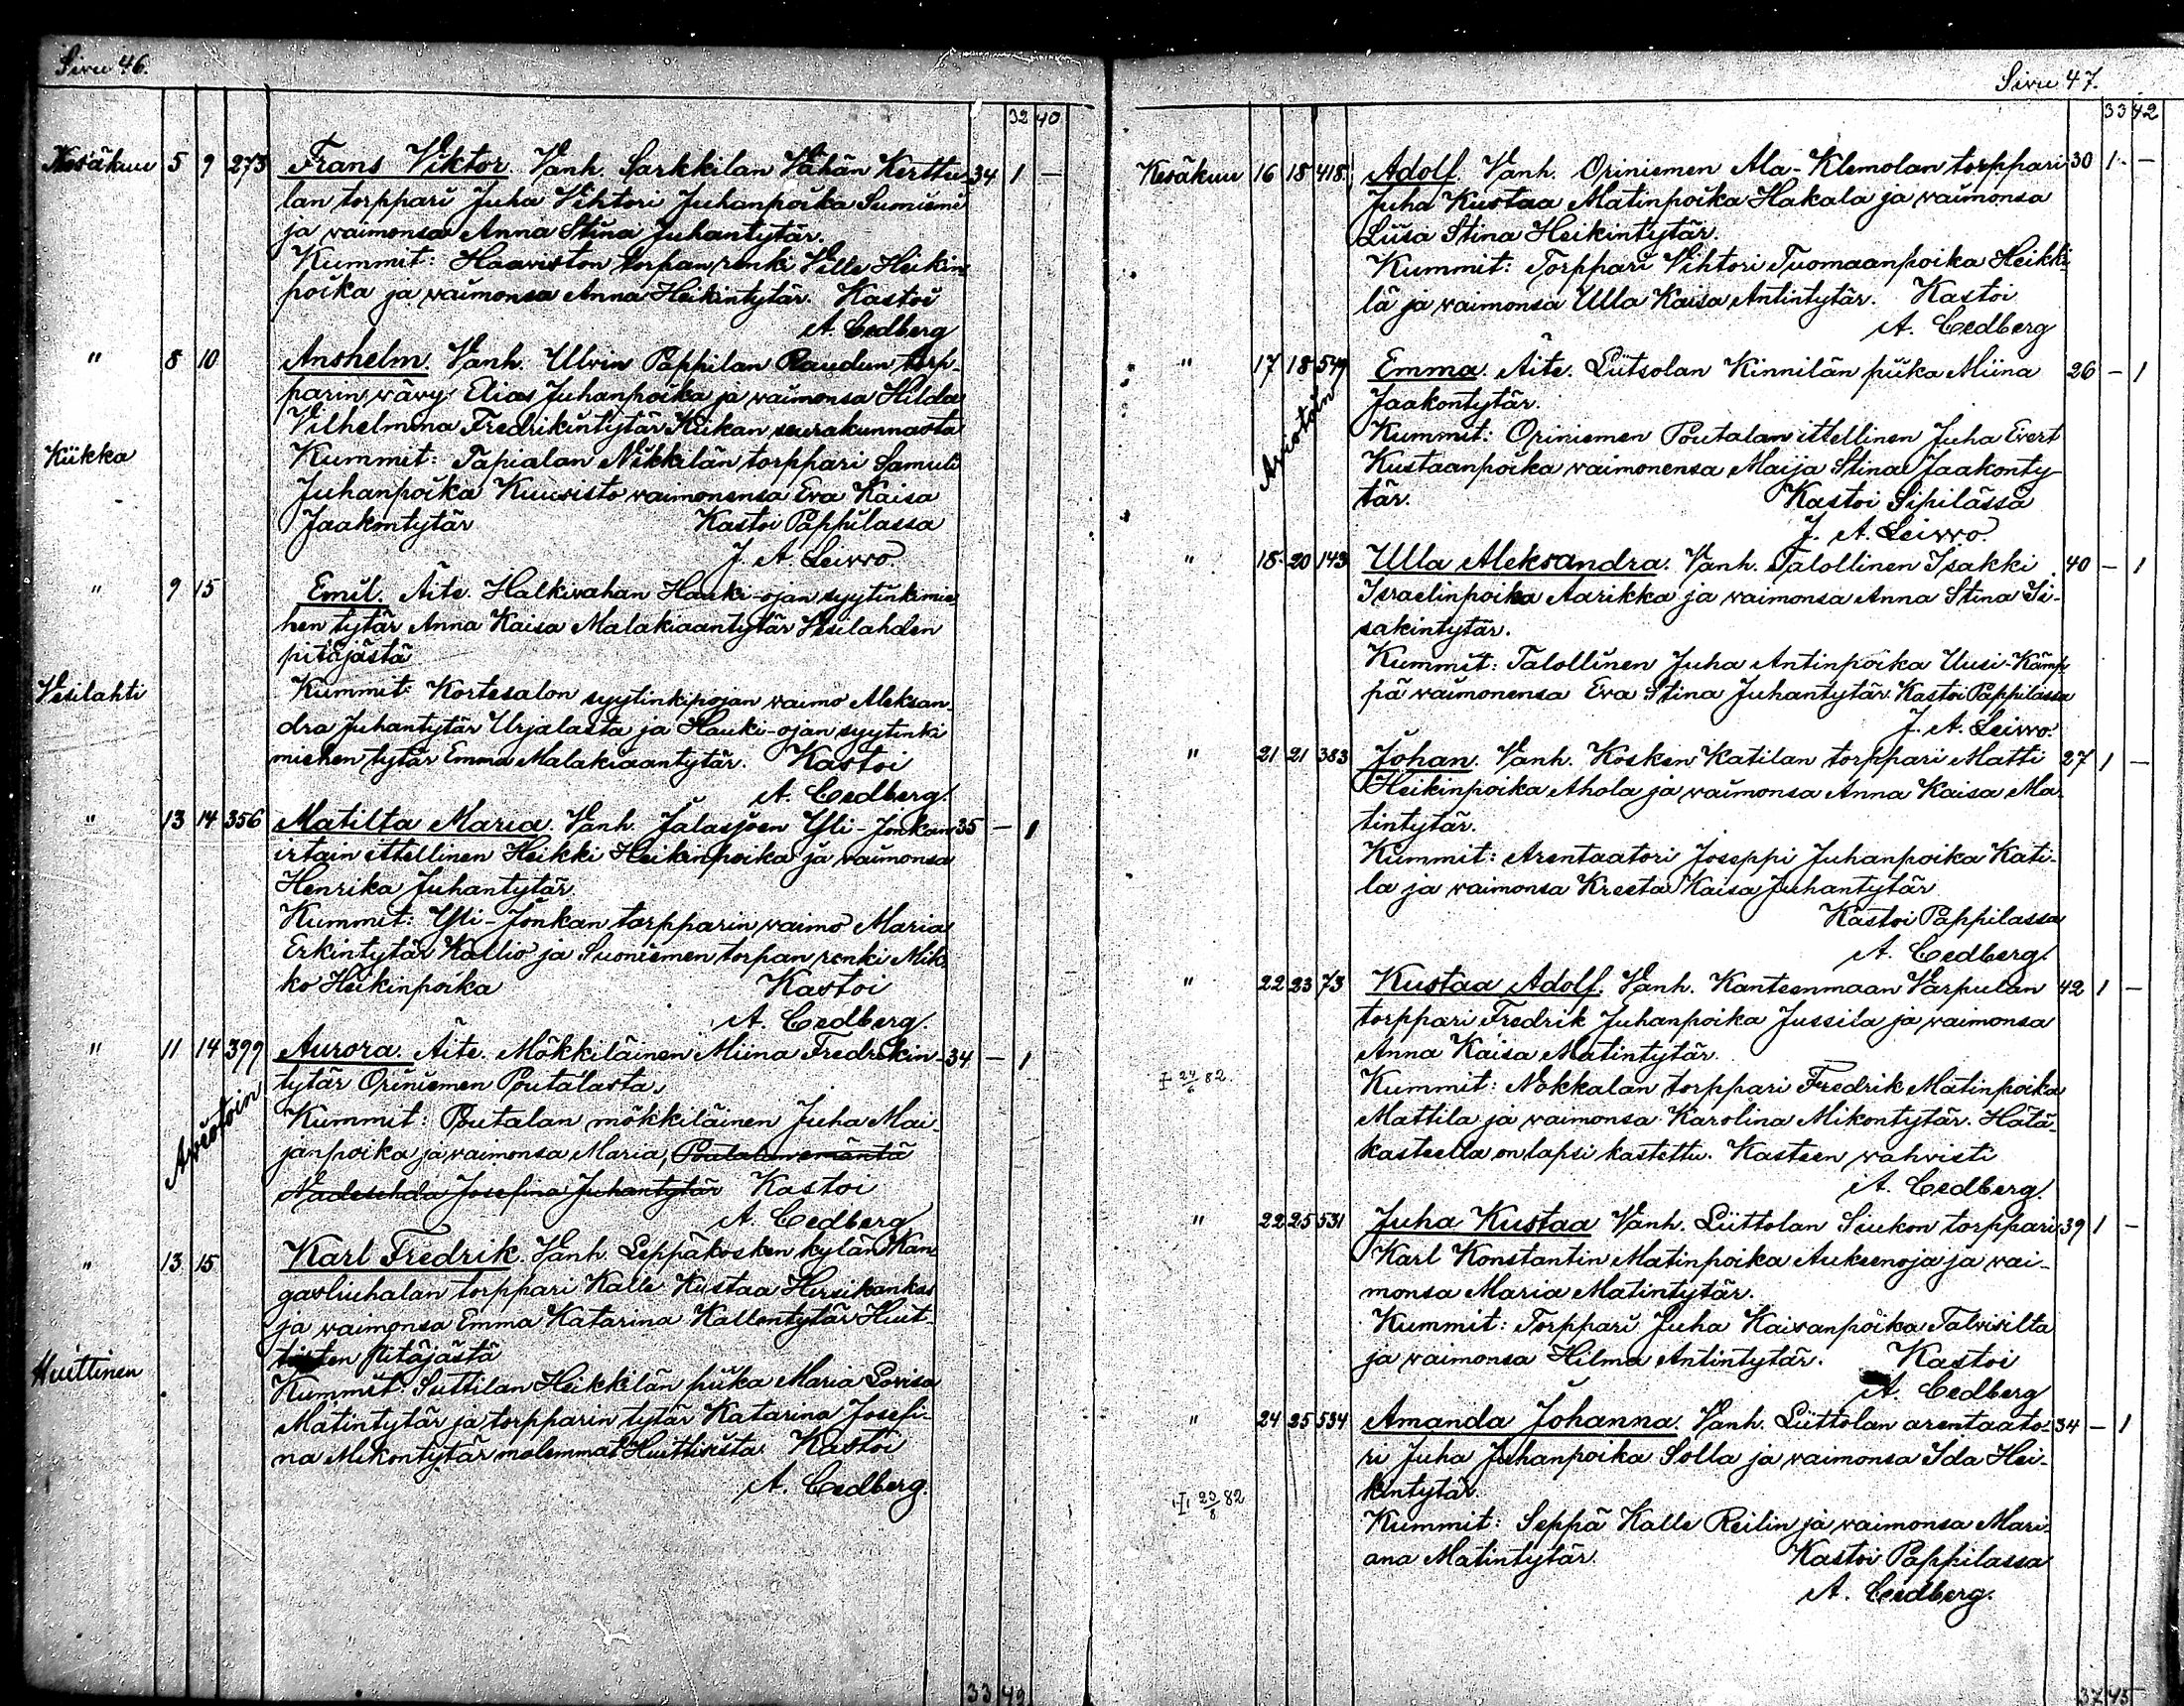 Sivu 46.
32 40
Kesäkuu 5 9 273 Frans Viktor. Vanh. Sarkkilan Vähän Kerttu- 34 1 —
lan torppari Juha Vihtori Juhanpoika Suniemi
ja waimonsa Anna Stina Juhantytär.
Kummit: Haawiston torpan renki Ville Heikin
poika ja waimonsa Anna Heikintytär. Kastoi
A. Cedberg
" 8 10 Anshelm. Vanh. Ulvin Pappilan Raudun torp-
parin wävy Elias Juhanpoika ja waimonsa Hilda
Vilhelmina Fredrikintytär Kiikan seurakunnasta
Kiikka Kummit: Tapialan Nikkilän torppari Samuli
Juhanpoika Kuuvisto waimonensa Eva Kaisa
Jaakontytär Kastoi Pappilassa
J. A. Leivvo.
" 9 15 Emil. Äite. Halkivahan Hauki-ojan syytinkimie
hen tytär Anna Kaisa Malakiaantytär Vesilahden
pitäjästä
Vesilahti Kummit: Kortesalon syytinkipojan waimo Aleksan-
dra Juhantytär Urjalasta ja Hauki-ojan syytinki
miehen tytär Emma Malakiaantytär. Kastoi
A. Cedberg.
" 13 14 356 Matilta Maria. Vanh. Jalasjoen Yli-Jonkan 35 — 1
irtain ittellinen Heikki Heikinpoika ja waimonsa
Henrika Juhantytär.
Kummit: Yli-Jonkan torpparin waimo Maria
Erkintytär Kallio ja Suoniemen torpan renki Mik
ko Heikinpoika Kastoi
A. Cedberg.
" 11 14 399 Aurora. Äite. Mökkiläinen Miina Fredrikin- 34 — 1
tytär Oriniemen Poutalasta.
Aviotoin
Kummit: Poutalan mökkiläinen Juha Mai-
janpoika ja waimonsa Maria, Poutalan emäntä
Nadeschda Josefina Juhantytär Kastoi
A. Cedberg
" 13 15 Karl Fredrik. Vanh. Leppäkosken kylän Kan
gasliuhalan torppari Kalle Kustaa Hirsikankas
ja waimonsa Emma Katarina Kallentytär Huit-
tisten pitäjästä
Huittinen
Kummit: Suttilan Heikkilän piika Maria Lovisa
Matintytär ja torpparin tytär Katarina Josefi-
na Mikontytär molemmat Huittisista. Kastoi
A. Cedberg.
33 42
Sivu 47.
33 42
Kesäkuu 16 18 418 Adolf. Vanh. Oriniemen Ala-Klemolan torppari 30 1 —
Juha Kustaa Matinpoika Hakala ja waimonsa
Liisa Stina Heikintytär.
Kummit: Torppari Vihtori Tuomaanpoika Heikki-
lä ja waimonsa Ulla Kaisa Antintytär. Kastoi
A. Cedberg
" 17 18 549 Emma. Äite. Liitsolan Kinnilän piika Miina 26 — 1
Jaakontytär.
Aviotoin
Kummit: Oriniemen Poutalan ittellinen Juha Evert
Kustaanpoika waimonensa Maija Stina Jaakonty-
tär. Kastoi Sipilässä
J. A. Leivvo.
" 18 20 143 Ulla Aleksandra. Vanh. Talollinen Isakki 40 — 1
Israelinpoika Aarikka ja waimonsa Anna Stina Ii-
sakintytär.
Kummit: Talollinen Juha Antinpoika Uusi-Kämp
pä waimonensa Eva Stina Juhantytär. Kastoi Pappilassa
J. A. Leivvo.
" 21 21 383 Johan. Vanh. Kosken Katilan torppari Matti 27 1 —
Heikinpoika Ahola ja waimonsa Anna Kaisa Ma-
tintytär.
Kummit: Arentaatori Joseppi Juhanpoika Kati-
la ja waimonsa Kreeta Kaisa Juhantytär
Kastoi Pappilassa
A. Cedberg.
" 22 23 73 Kustaa Adolf. Vanh. Kanteenmaan Varpulan 42 1 —
torppari Fredrik Juhanpoika Jussila ja waimonsa
Anna Kaisa Matintytär.
24/6 82 Kummit: Nokkalan torppari Fredrik Matinpoika
Mattila ja waimonsa Karolina Mikontytär. Hätä-
kasteella on lapsi kastettu. Kasteen wahvisti
A. Cedberg.
" 22 25 531 Juha Kustaa Vanh. Liittolan Siukon torppari 39 1 —
Karl Konstantin Matinpoika Aukeenoja ja wai-
monsa Maria Matintytär.
Kummit: Torppari Juha Kaivanpoika Talvisilta
ja waimonsa Hilma Antintytär. Kastoi
A. Cedberg
" 24 25 534 Amanda Johanna. Vanh. Liittolan arentaato- 34 — 1
ri Juha Juhanpoika Solla ja waimonsa Ida Hei-
kintytär.
82
Kummit: Seppä Kalle Reilin ja waimonsa Mari-
ana Matintytär. Kastoi Pappilassa
A. Cedberg.
37 45